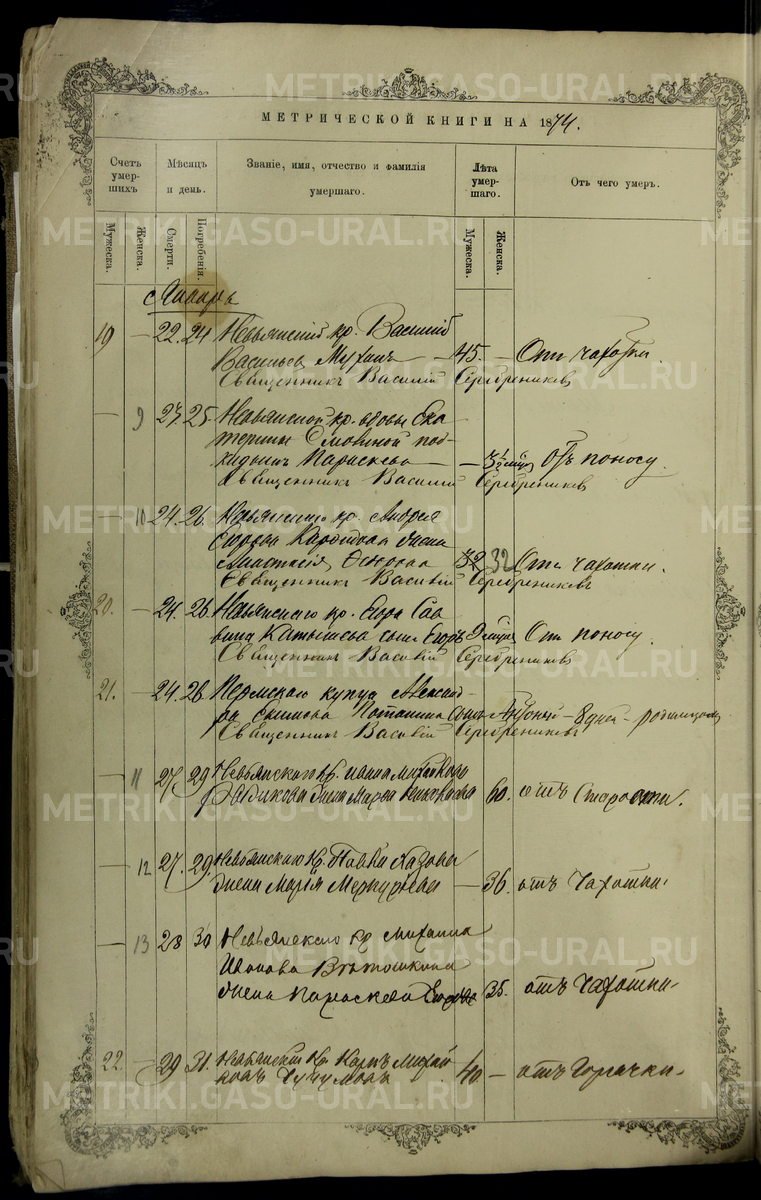 МЕТРИЧЕСКОЙ КНИГИ НА 1874.
Счетъ умершихъ
Мѣсяцъ и день.
Званіе, имя, отчество и фамилія умершаго.
Лѣта умершаго.
Отъ чего умеръ.
Мужеска.
Женска.
Смерти.
Погребенія.
Мужеска.
Женска.
Январь
19 — 22. 24 Невьянскій кр. Василій
Васильевъ Мухинъ — 45. — Отъ чахотки.
Священникъ Василій Серебрениковъ
— 9 23. 25 Невьянской кр. вдовы Ека
терины
кидышъ Параскева — Отъ поносу.
Священникъ Василій Серебрениковъ
— 10 24. 26. Невьянскаго кр. Андрея
жена
Анастасія 32 Отъ чахотки.
Священникъ Василій Серебрениковъ
20. — 24. 26. Невьянскаго кр. Егора Сав
вина сынъ Егоръ Отъ поносу.
Священникъ Василій Серебрениковъ
21. — 24. 26. Пермскаго купца Александ
ра Поташина сынъ Антоній — 8 дней — родимцомъ
Священникъ Василій Серебрениковъ
— 11 27. 29 Невьянскаго кр. Ивана
жена Марфа 60. отъ Старости.
— 12 27. 29 Невьянскаго кр. Павла
жена Марія Меркурьева — 36. отъ Чахотки.
— 13 28 30 Невьянскаго кр. Михаила
Иванова
жена Параскева 35. отъ Чахотки.
22. — 29 31. Невьянскій кр. Карпъ Михай
ловъ 40. — отъ Горячки.
METRIKI.GASO-URAL.RU